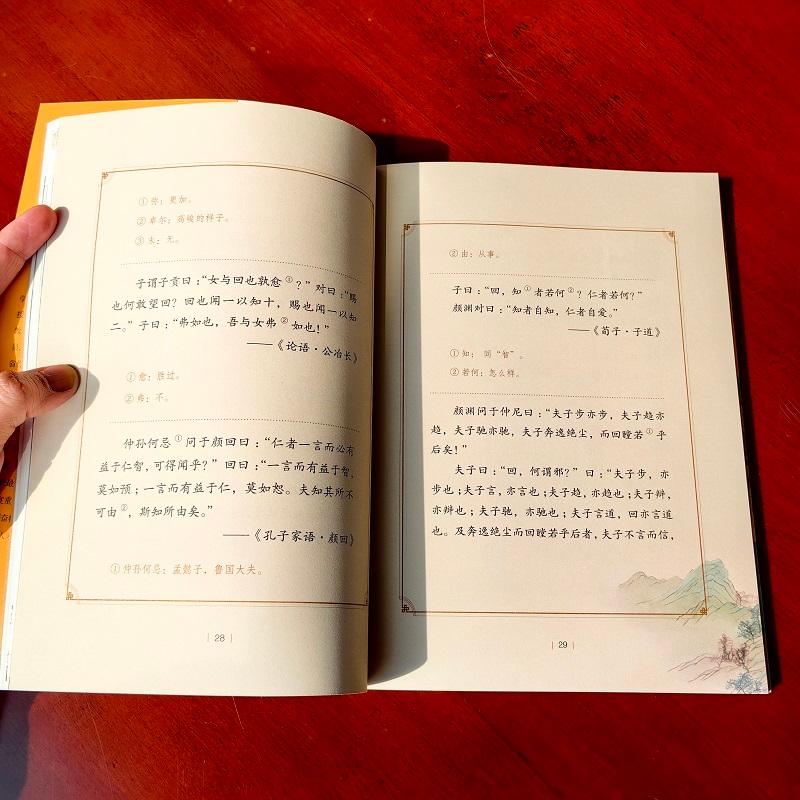 ①弥：更加。
②卓尔：高峻的样子。
③末：无。
子谓子贡曰：“女与回也孰愈①？”对曰：“赐
也何敢望回？回也闻一以知十，赐也闻一以知
二。”子曰：“弗如也，吾与女弗②如也！”
——《论语·公冶长》
①愈：胜过。
②弗：不。
仲孙何忌①问于颜回曰：“仁者一言而必有
益于仁智，可得闻乎？”回曰：“一言而有益于智，
莫如预；一言而有益于仁，莫如恕。夫知其所不
可由②，斯知所由矣。”
——《孔子家语·颜回》
①仲孙何忌：孟懿子，鲁国大夫。
28
②由：从事。
子曰：“回，知①者若何②？仁者若何？”
颜渊对曰：“知者自知，仁者自爱。”
——《荀子·子道》
①知：同“智”。
②若何：怎么样。
颜渊问于仲尼曰：“夫子步亦步，夫子趋亦
趋，夫子驰亦驰，夫子奔逸绝尘，而回瞠若①乎
后矣！”
夫子曰：“回，何谓邪？”曰：“夫子步，亦
步也；夫子言，亦言也；夫子趋，亦趋也；夫子辩，
亦辩也；夫子驰，亦驰也；夫子言道，回亦言道
也。及奔逸绝尘而回瞠若乎后者，夫子不言而信，
29